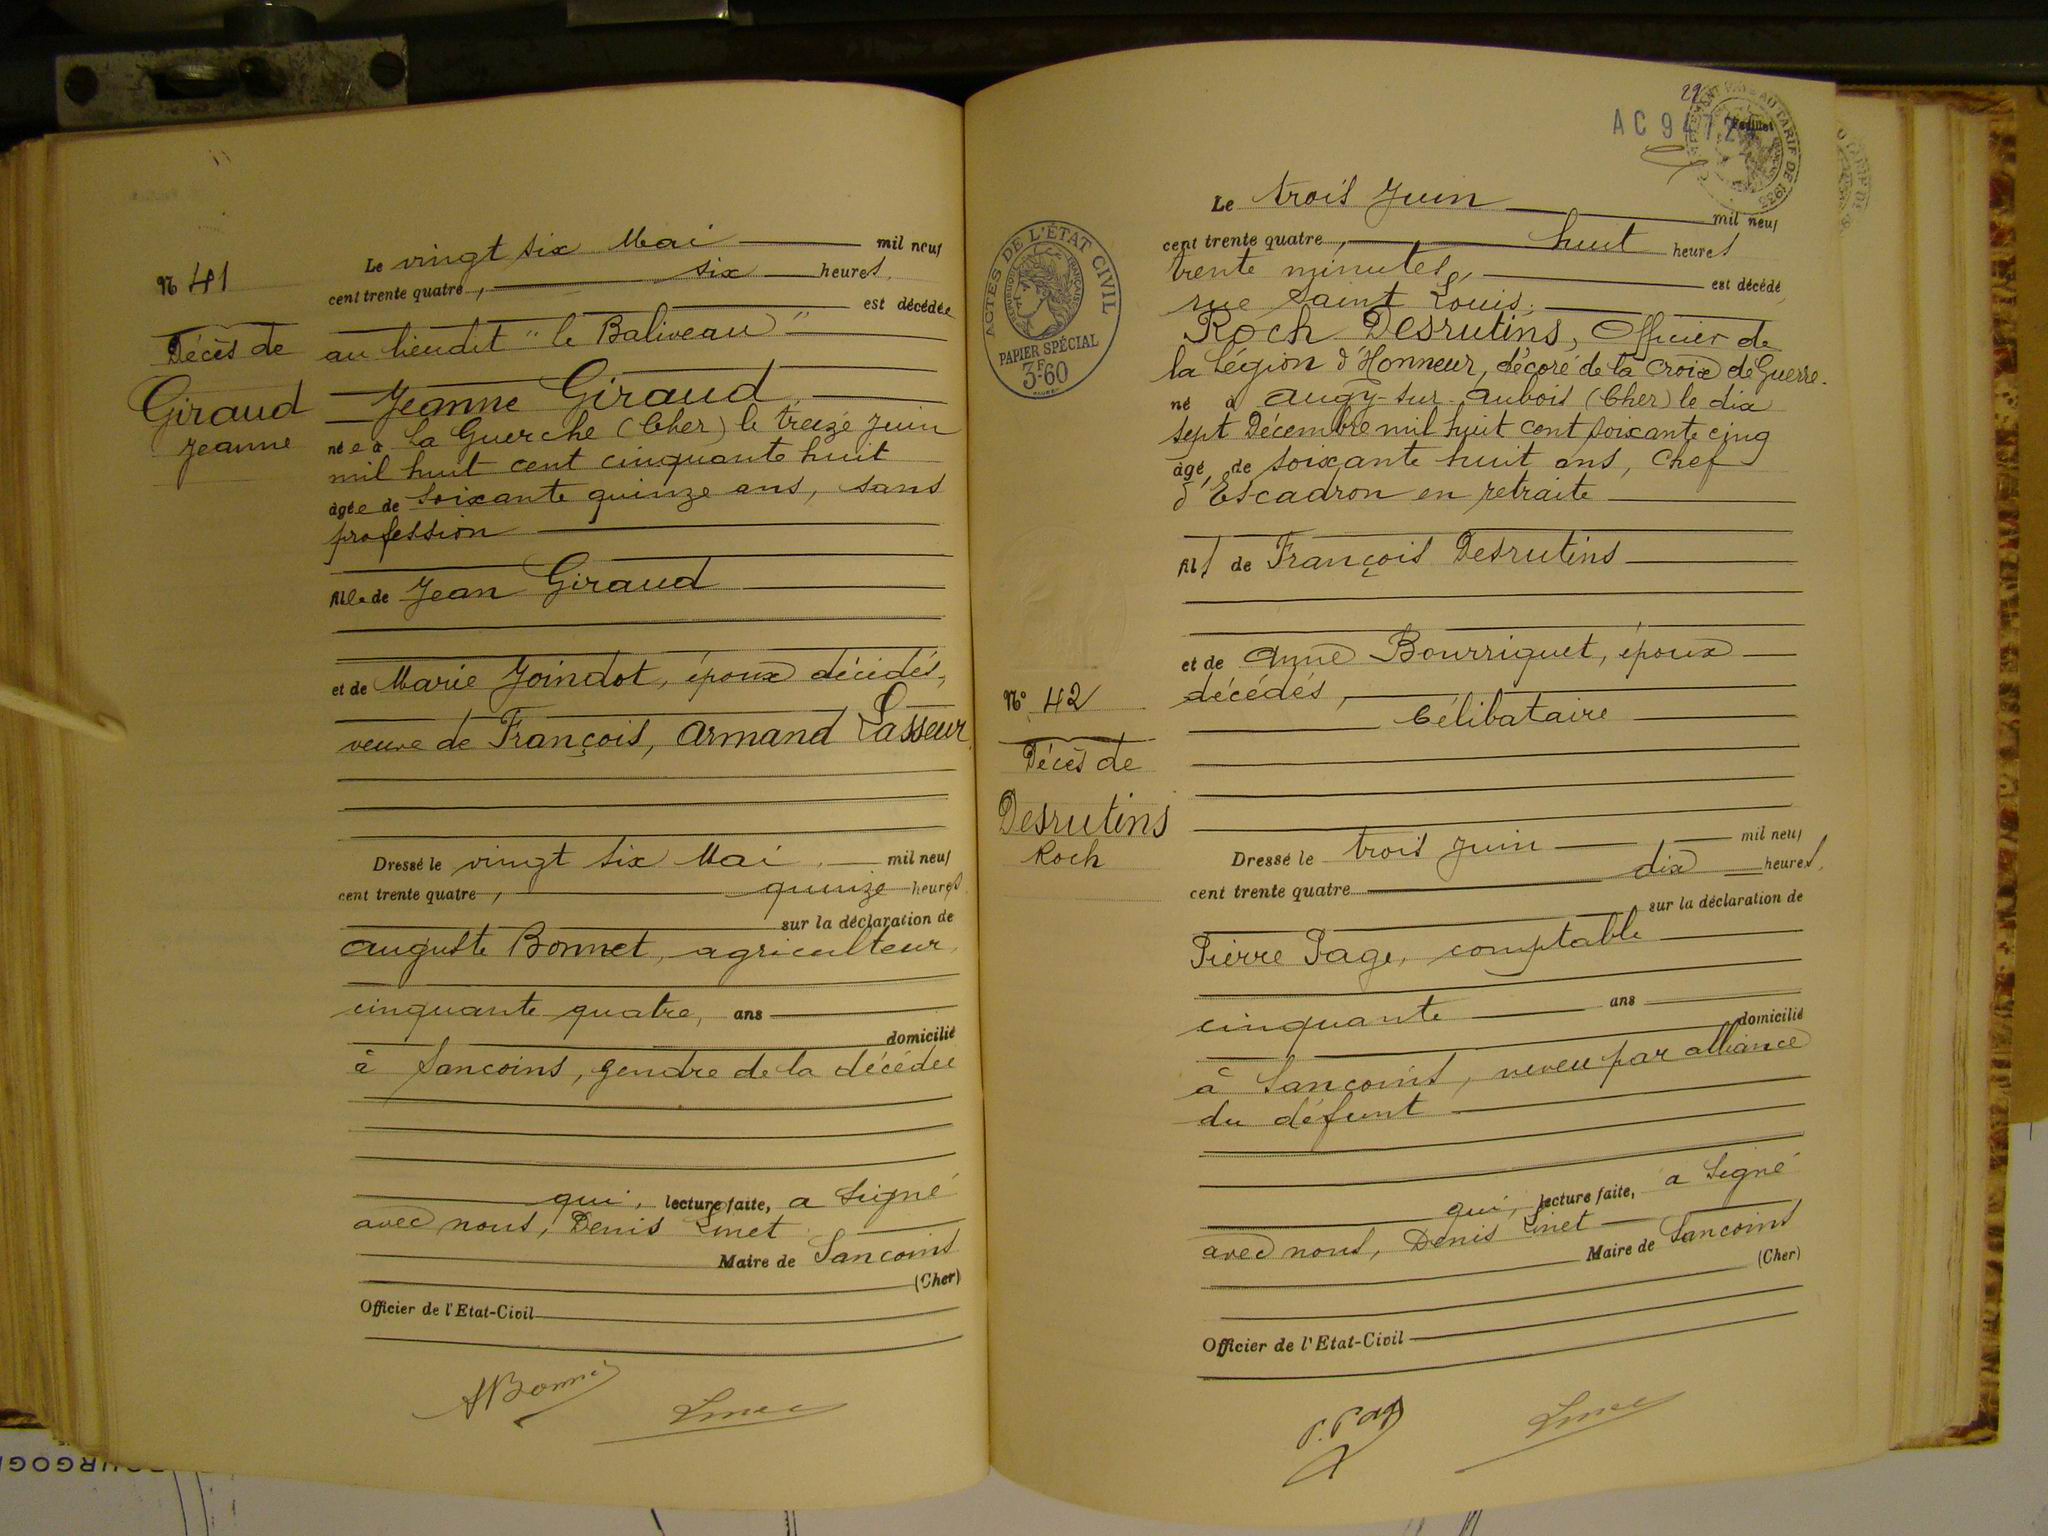 N 41
Décès de
Giraud
Jeanne
Le vingt six Mai mil neuf
cent trente quatre, six heures.
est décédée
au lieudit "le Baliveau"
Jeanne Giraud
née à La Guerche (Cher) le treize Juin
mil huit cent cinquante huit
âgée de soixante quinze ans, sans
profession
fille de Jean Giraud
et de Marie Joindot, époux décédés,
veuve de François, Armand Lasseur
Dressé le vingt six Mai mil neuf
cent trente quatre, quinze heures
sur la déclaration de
Auguste Bonnet, agriculteur,
cinquante quatre, ans
domicilié
à Sancoins, gendre de la décédée
qui, lecture faite, a signé
avec nous, Denis Linet
Maire de Sancoins
(Cher)
Officier de l'Etat-Civil
29
AC 94
Feuillet
ACTES DE L'ÉTAT CIVIL
RÉPUBLIQUE FRANÇAISE
PAPIER SPÉCIAL
3F60
N° 42
Décès de
Desrutins
Roch
Le trois Juin mil neuf
cent trente quatre, huit heures
trente minutes, est décédé
rue Saint Louis,
Roch Desrutins, Officier de
la Légion d'Honneur, décoré de la Croix de Guerre.
né à Augy-sur-Aubois (Cher) le dix
sept Décembre mil huit cent soixante cinq
âgé, de soixante huit ans, Chef
d'Escadron en retraite
fils de François Desrutins
et de Anne Bourriquet, époux
décédés,
Célibataire
Dressé le trois Juin mil neuf
cent trente quatre dix heures,
sur la déclaration de
Pierre Page, comptable
cinquante ans
domicilié
à Sancoins, neveu par alliance
du défunt
qui, lecture faite, a signé
avec nous, Denis Linet
Maire de Sancoins
(Cher)
Officier de l'Etat-Civil